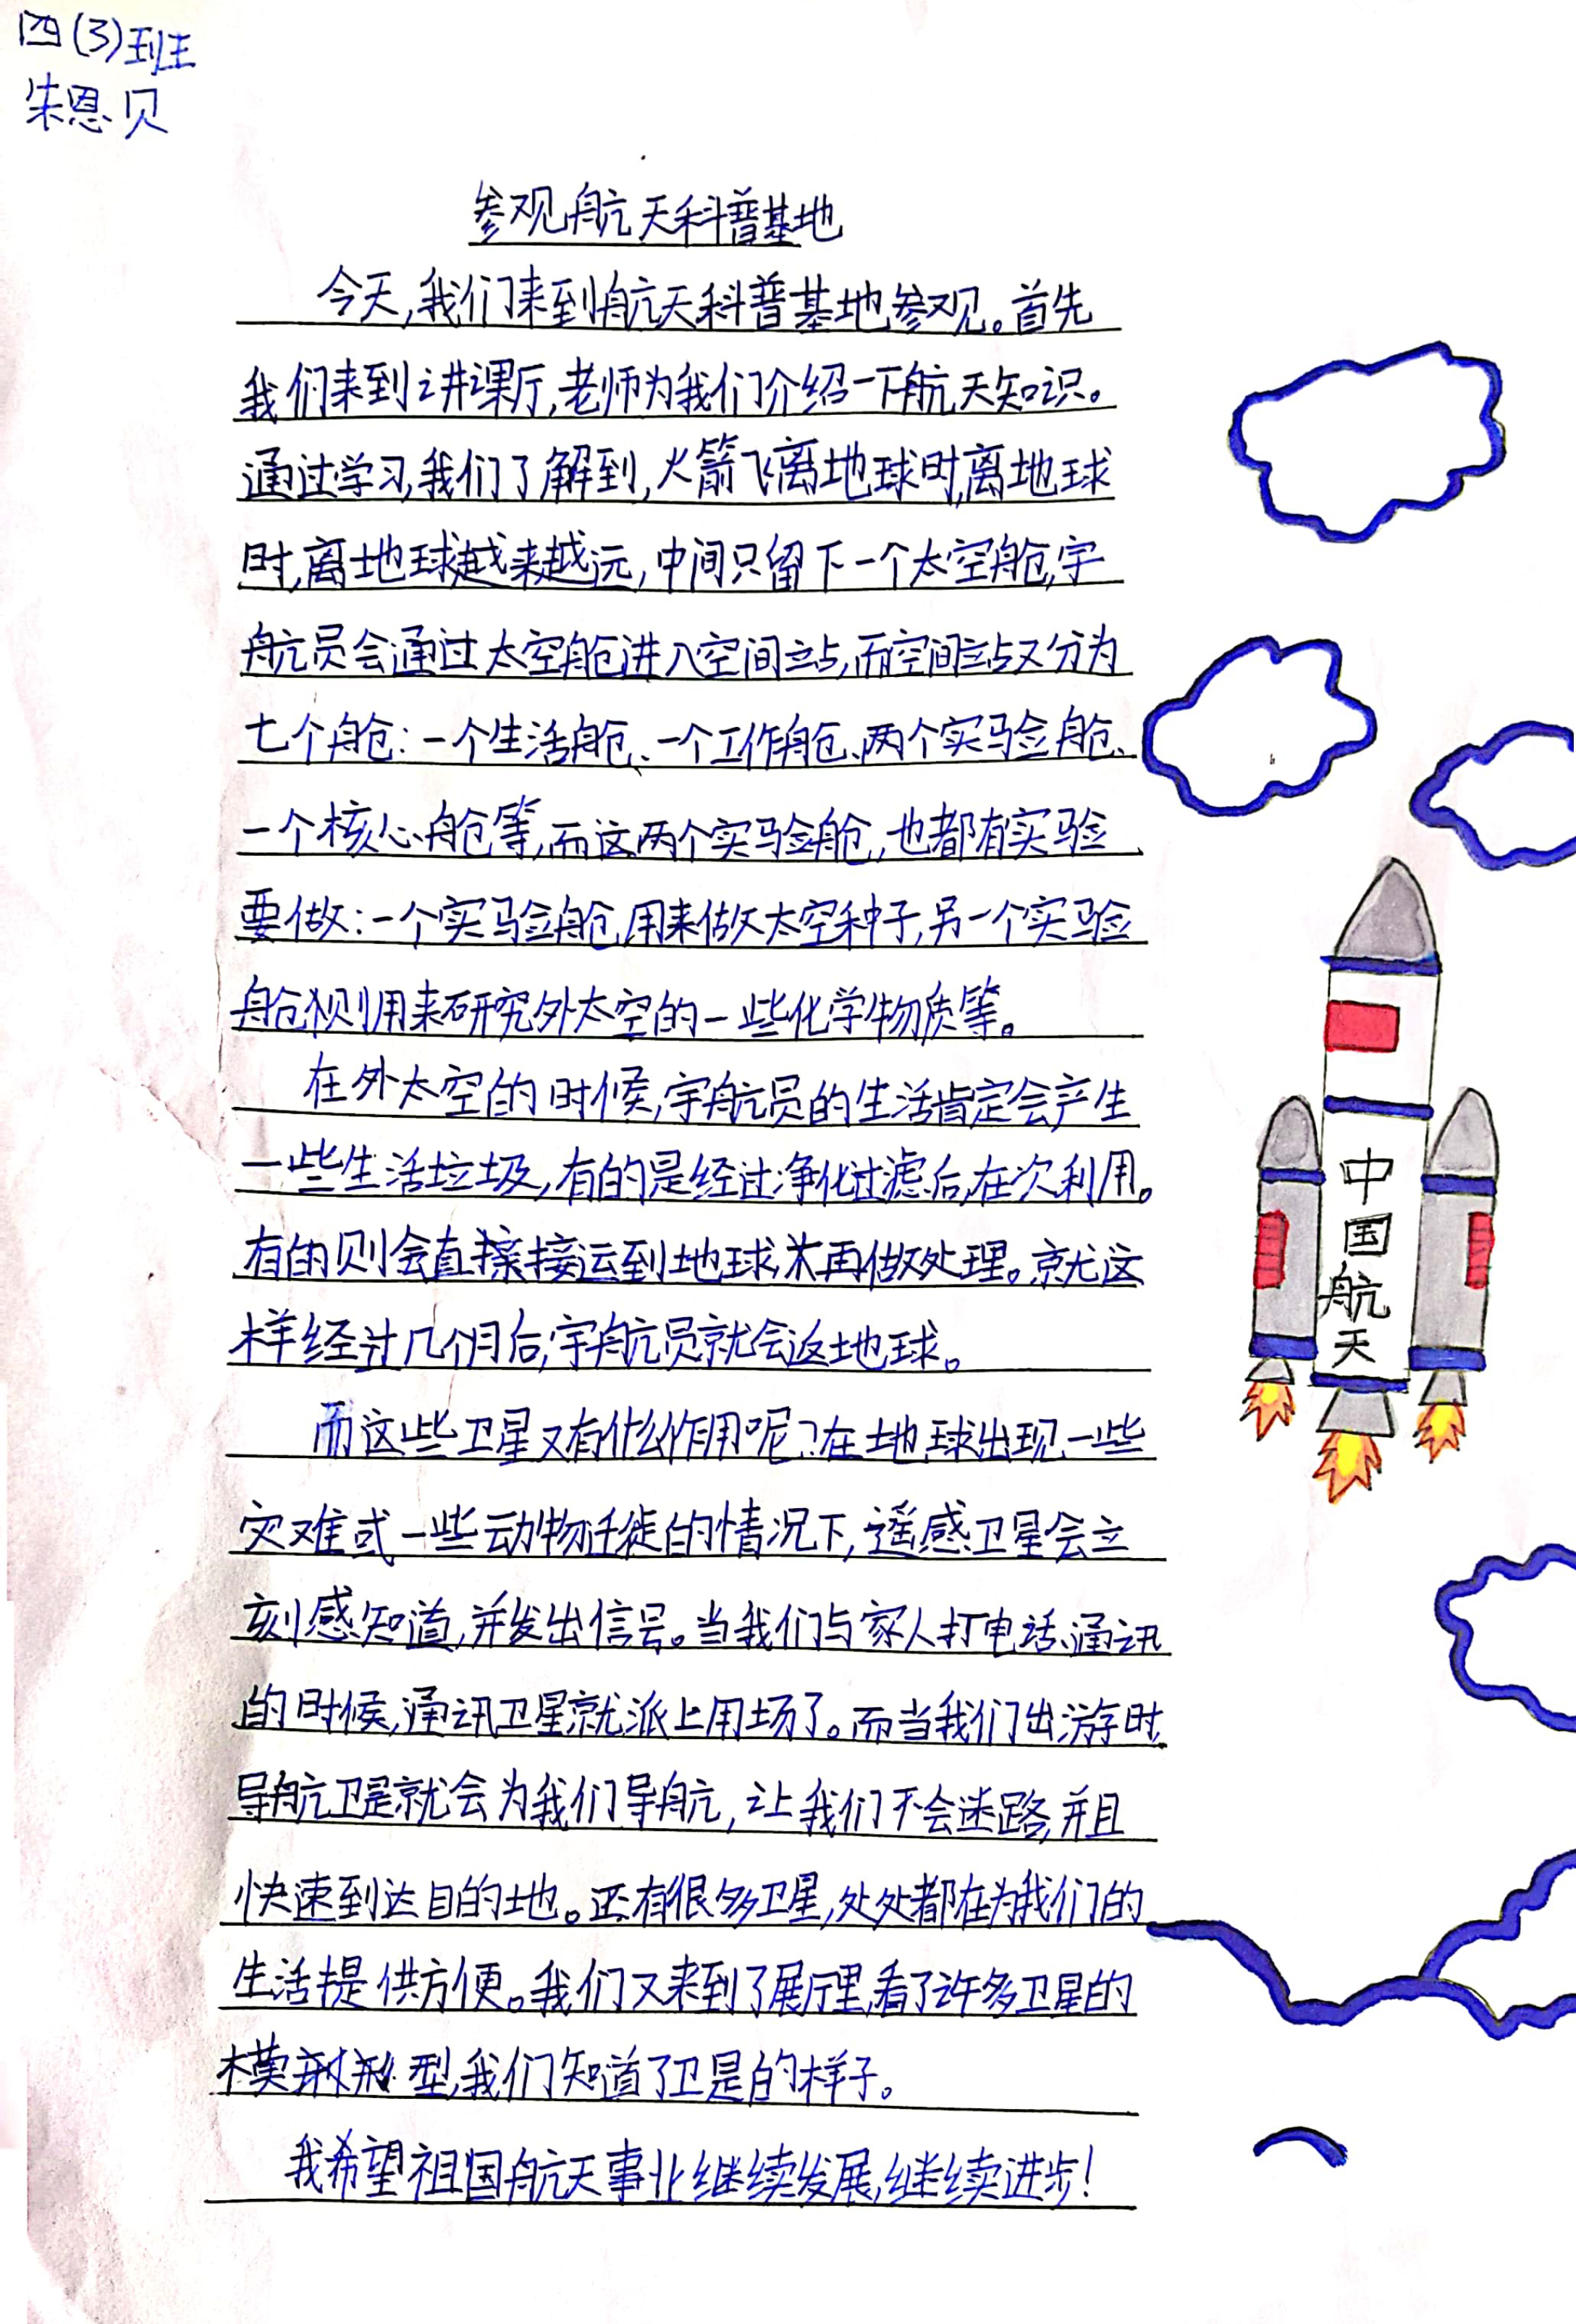 四(3)班
朱恩贝
参观航天科普基地
今天,我们来到航天科普基地参观。首先
我们来到讲课厅,老师为我们介绍一下航天知识。
通过学习,我们了解到,火箭飞离地球时,离地球
时,离地球越来越远,中间只留下一个太空舱,宇
航员会通过太空舱进入空间站,而空间站又分为
七个舱:一个生活舱、一个工作舱、两个实验舱、
一个核心舱等,而这两个实验舱,也都有实验
要做:一个实验舱用来做太空种子,另一个实验
舱则用来研究外太空的一些化学物质等。
在外太空的时候,宇航员的生活肯定会产生
一些生活垃圾,有的是经过净化过滤后,在次利用。
有的则会直接接运到地球,来再做处理。就这
样经过几个月后,宇航员就会返地球。
而这些卫星又有什么作用呢?在地球出现一些
灾难或一些动物迁徙的情况下,遥感卫星会立
刻感知道,并发出信号。当我们与家人打电话、通讯
的时候,通讯卫星就派上用场了。而当我们出游时,
导航卫星就会为我们导航,让我们不会迷路,并且
快速到达目的地。还有很多卫星,处处都在为我们的
生活提供方便。我们又来到了展厅里,看了许多卫星的
模型,我们知道了卫是的样子。
我希望祖国航天事业继续发展,继续进步!
中
国
航
天